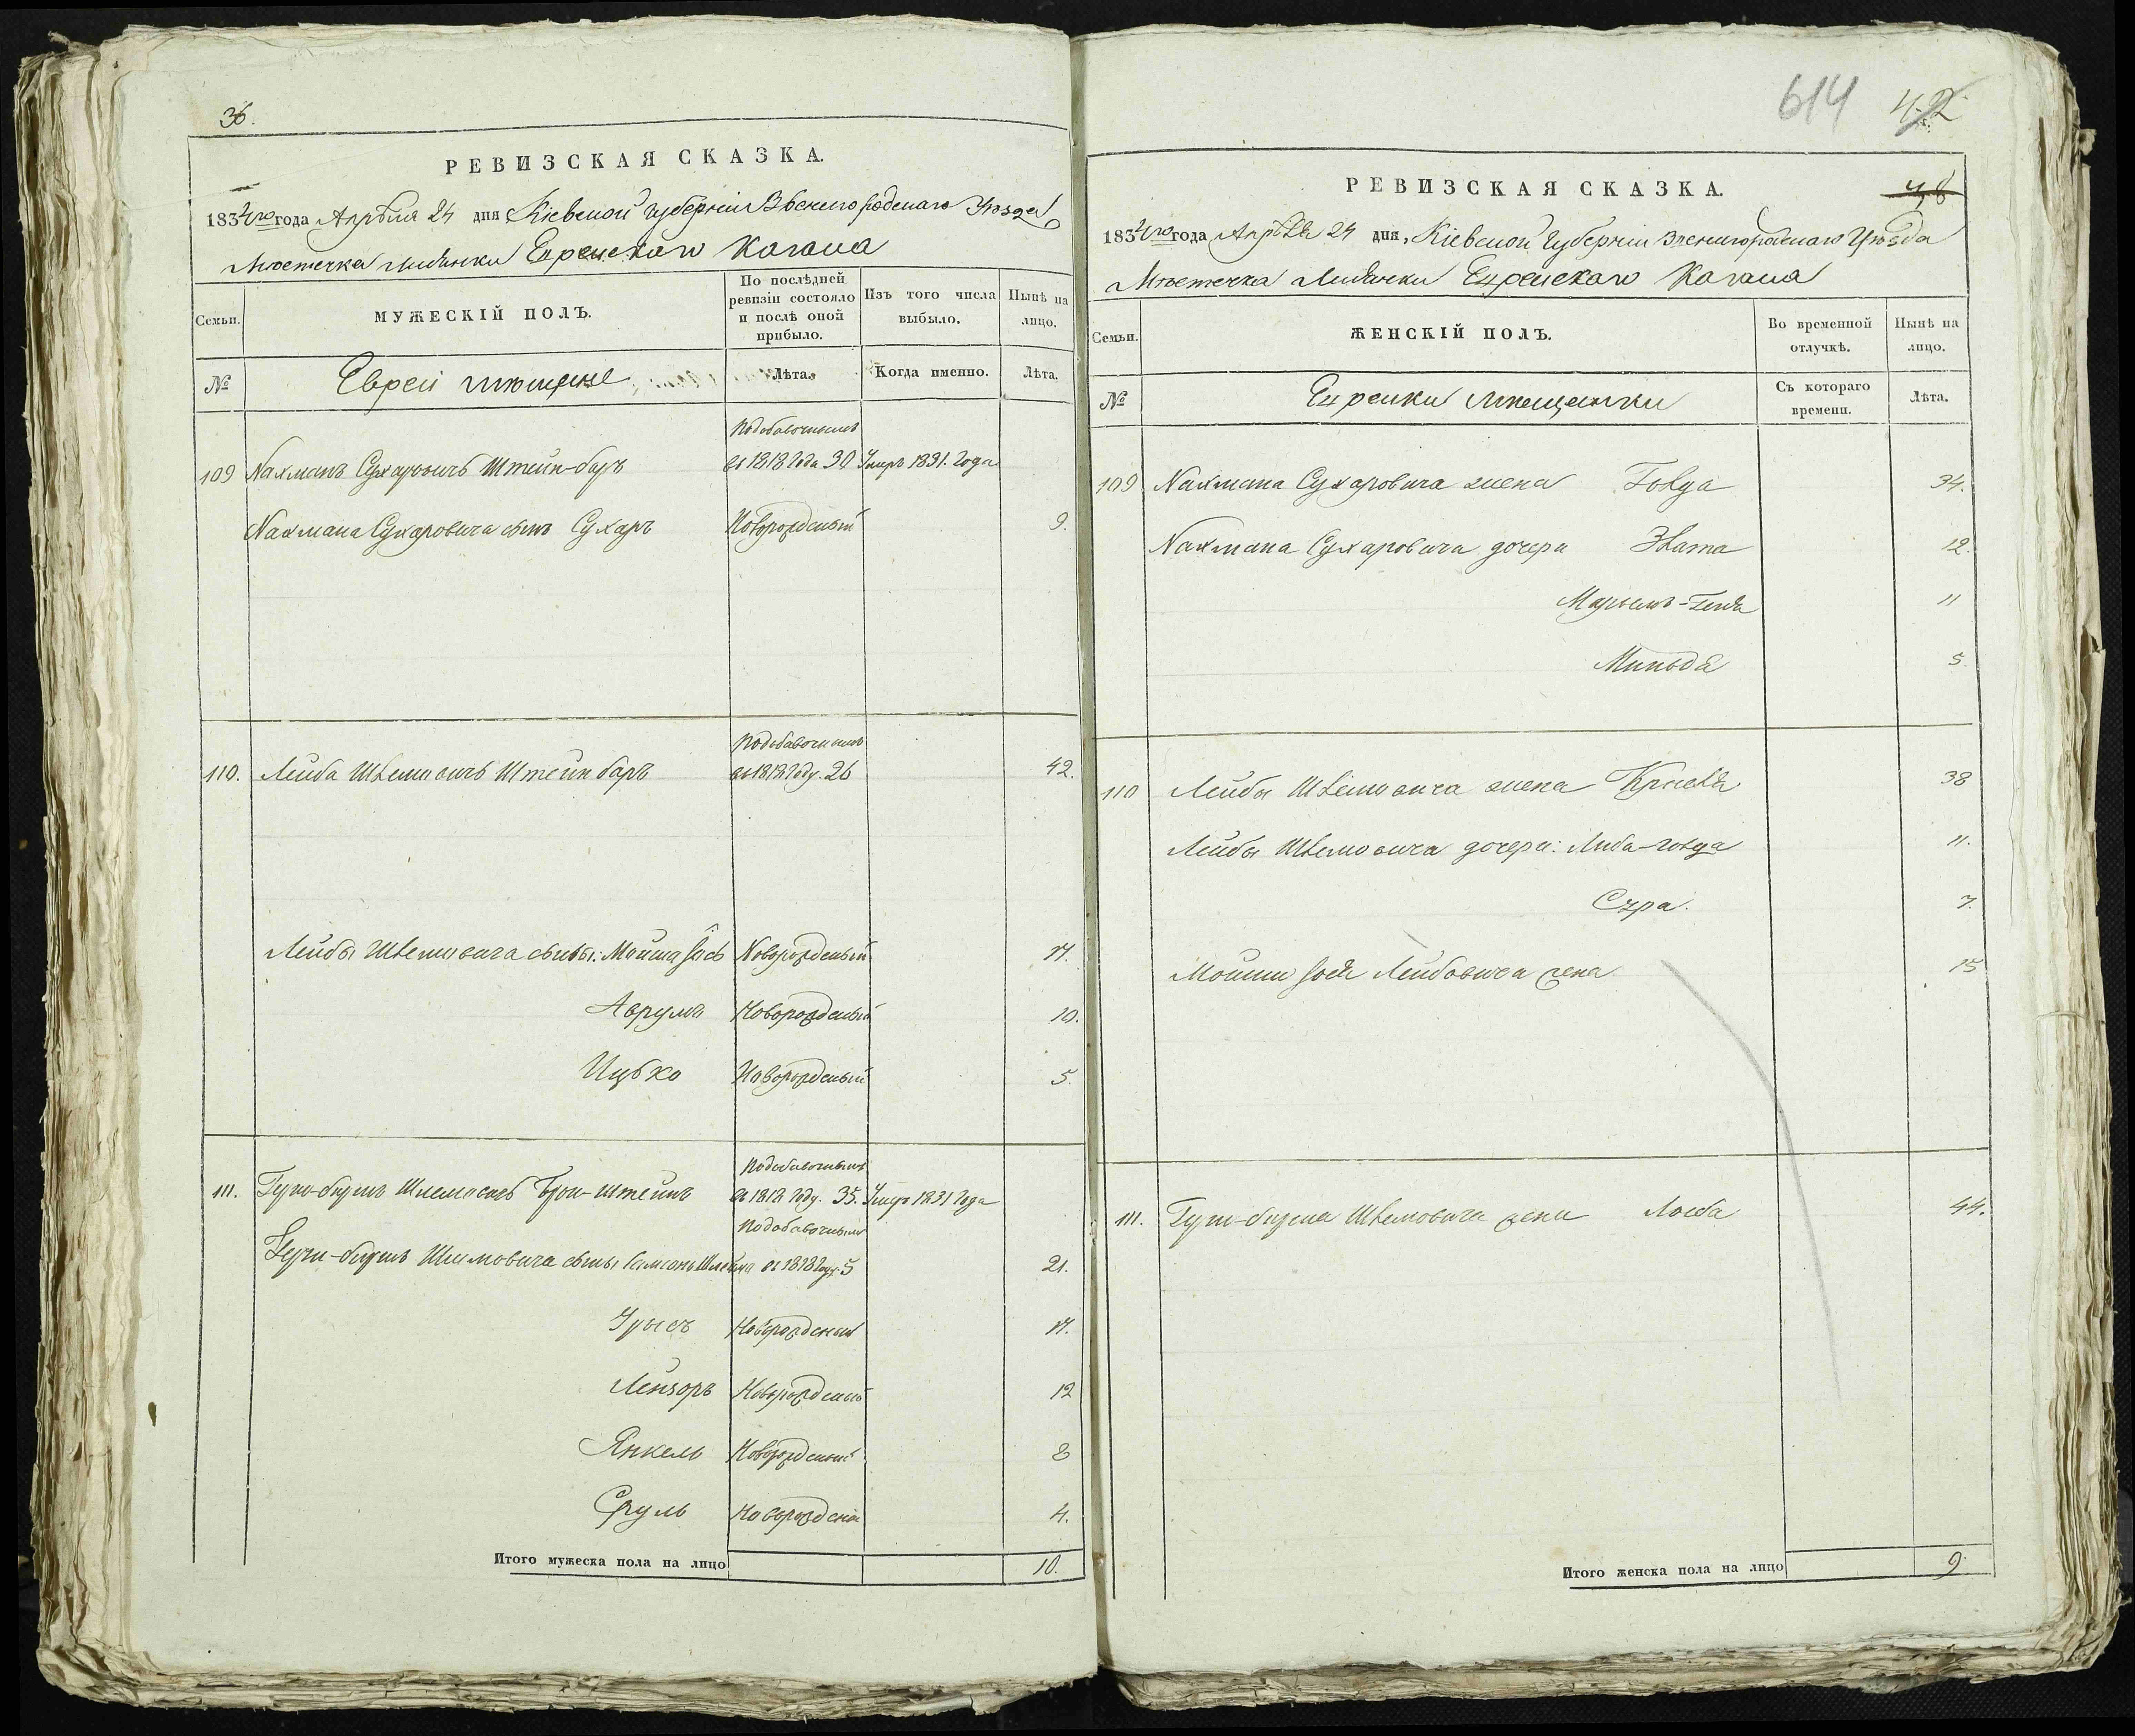 36.
РЕВИЗСКАЯ СКАЗКА.
1834го года Апрѣля 24 дня Кіевской Губерніи Звенигородскаго Уѣзда
Мѣстечка Лисянки Еврейскаго Кагала
Семьи.
МУЖЕСКІЙ ПОЛЪ.
По послѣдней ревизіи состояло и послѣ оной прибыло.
Изъ того числа выбыло.
Нынѣ на лицо.
№
Евреи мѣщане
Лѣта.
Когда именно.
Лѣта.
Подобавочнымъ
109 Нахманъ Сухаровичъ Штейн-баръ въ 1818 года 30 Умеръ 1831. Года
Нахмана Сухаровича сынъ Сухаръ Новорожденый 9.
Подобавочнымъ
110. Лейба Шлемовичъ Штейнбаръ въ 1818 году. 26 42.
Лейбы Шлемовича сыны: Мойша Іось Новорожденый 17.
Аврумъ Новорожденый 10.
Ицько Новорожденый 5.
Подобавочнымъ
111. Шлемовичъ Брон-штейнъ въ 1818 году. 35. Умеръ 1831 года
Подобавочнымъ
сыны Самсонъ Шлёма въ 1818 году. 5 21.
Новорожденый 17.
Лейзоръ Новорожденый 12
Янкель Новорожденый 8
Сруль Новорожденый 4.
Итого мужеска пола на лицо 10.
614 42
РЕВИЗСКАЯ СКАЗКА.
48
1834го года Апрѣля 24 дня, Кіевской Губерніи Звенигородскаго Уѣзда
Мѣстечка Лисянки Еврейскаго Кагала
Семьи.
ЖЕНСКІЙ ПОЛЪ.
Во временной отлучкѣ.
Нынѣ на лицо.
№
Еврейки мѣщанки
Съ котораго времени.
Лѣта.
109 Нахмана Сухаровича жена Голда 34.
Нахмана Сухаровича дочери Злата 12.
Марьемъ-Гендя 11
Миньдя 5.
110 Лейбы Шлемовича жена Крейня 38
Лейбы Шлемовича дочери: Либа-голда 11.
Сура. 7.
Мойши Іося Лейбовича жена 15
111. Шлемовича жена 44.
Итого женска пола на лицо 9